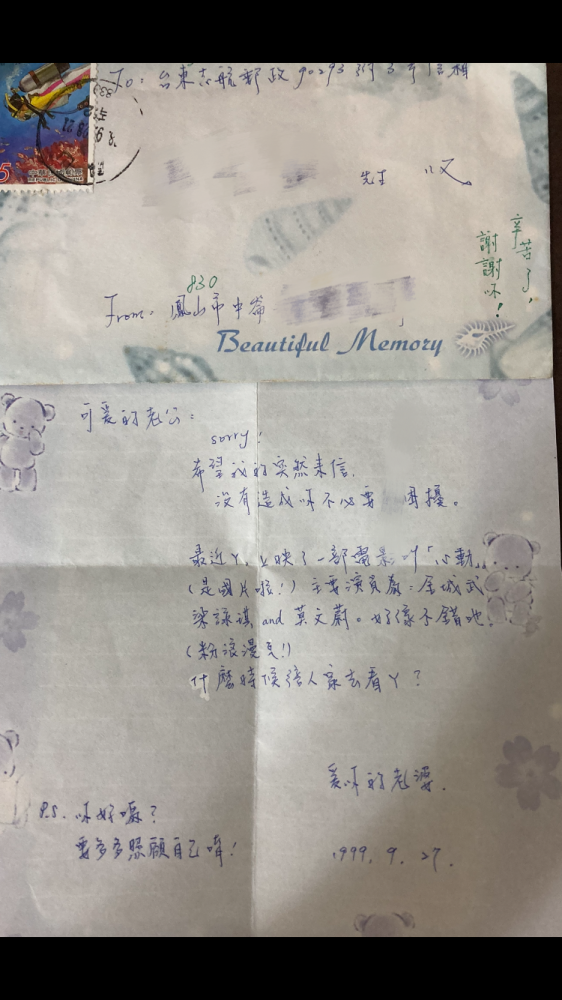 To: 台東志航郵政90293附3号信箱
先生 收
辛苦了,
謝謝你!
830
From: 鳳山市中崙
Beautiful Memory
5
中華民國郵票
可爱的老公:
sorry!
希望我的突然来信,
沒有造成你不必要 困擾。
最近ㄚ,上映了一部電影叫「心動」
(是國片啦!) 主要演員為:金城武
梁詠琪 and 莫文蔚。好像不錯吔!
(粉浪漫ㄛ!)
什麼時候陪人家去看ㄚ?
爱你的老婆.
P.S. 你好嗎?
要多多照顧自己唷!
1999. 9. 27.